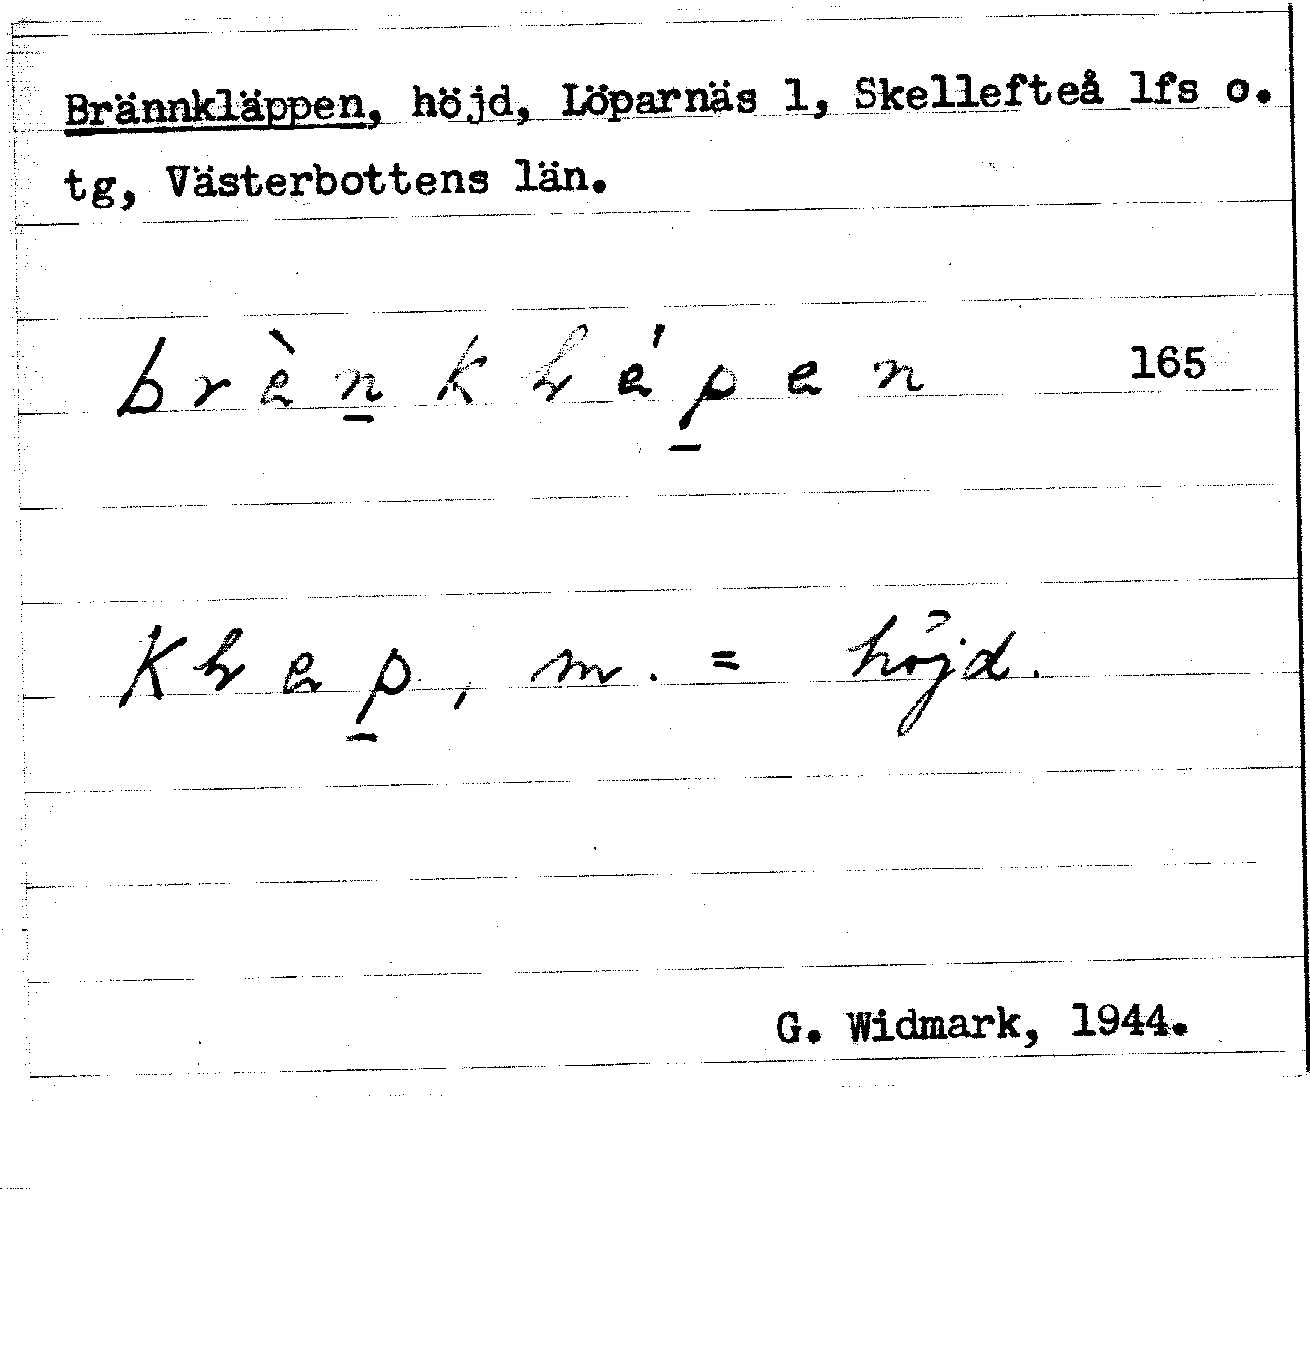 Brännkläppen, höjd, Löparnäs 1, Skellefteå lfs o.
tg, Västerbottens län.
165
m. = höjd.
G. Widmark, 1944.